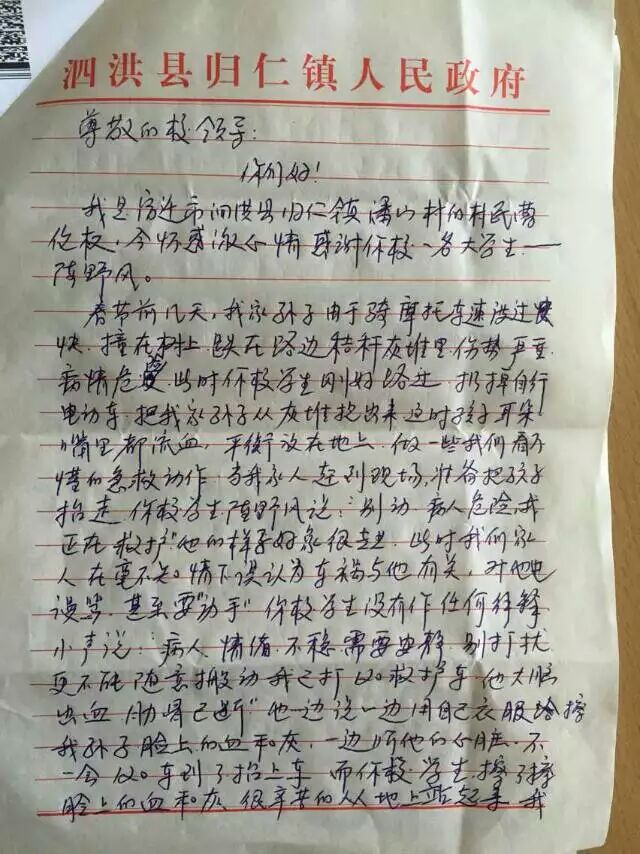 泗洪县归仁镇人民政府
尊敬的校领导：
你们好！
我是宿迁市泗洪县归仁镇潘山村的村民曹
化权，今怀感激心情感谢你校一名大学生——
陈野风。
春节前几天，我家孙子由于骑摩托车速没过
快，撞在树上跌在路边秸秆灰堆里伤势严重
病情危，此时你校学生刚好路过，扔掉自行
电动车，把我家孙子从灰堆抱出来这时孩子耳朵
嘴里都流血，平衡放在地上，做一些我们看不
懂的急救动作，当我家人赶到现场，准备把孩子
抬走你校学生陈野风说：别动病人危险，我
正在救护"他的样子好象很，此时我们家
人在毫不知情下误认为车祸与他有关，对他
谩骂，甚至要"动手"你校学生没有作任何解释
小声说：病人情绪不稳需要安静，别打扰
更不能随意搬动我已打120救护车他大脑
出血肋骨已断"他一边说一边用自己衣服给擦
我孙子脸上的血和灰，一边听他的心脏，不
一会120车到了抬上车而你校学生擦了擦
脸上的血和灰很辛苦的从地上站起来我